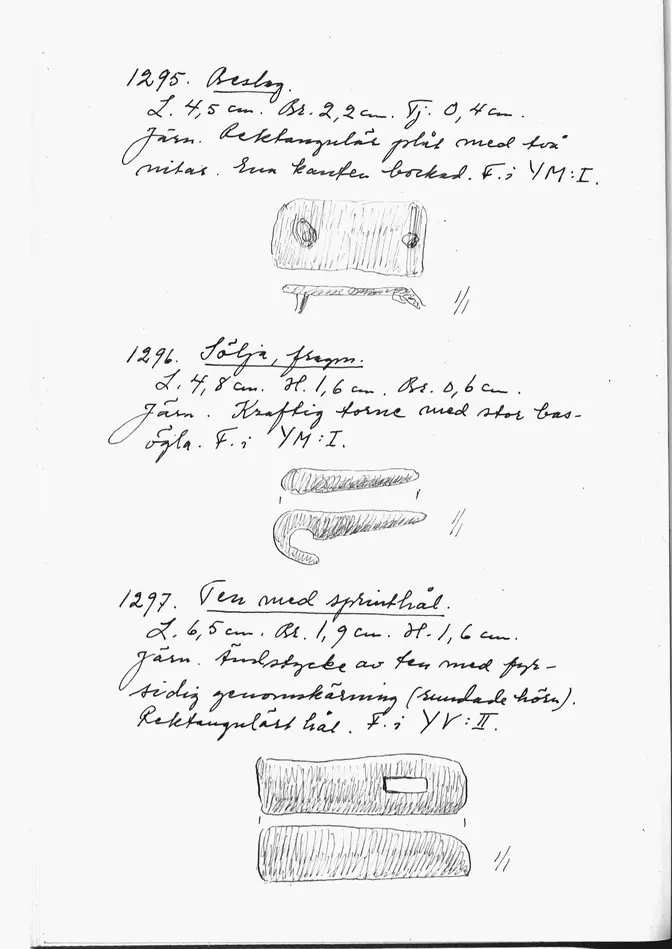 1295. Beslag.
L. 4,5 cm. Br. 2,2 cm. Tj. 0,4 cm.
Järn. Rektangulär plåt med två
nitar. Ena kanten bockad. F. i YM:I.
1/1
1296. Sölja, fragm.
L. 4,8 cm. H. 1,6 cm. Br. 0,6 cm.
Järn. Kraftig torne med stor bas-
ögla. F. i YM:I.
1/1
1297. Ten med sprinthål.
L. 6,5 cm. Br. 1,9 cm. H. 1,6 cm.
Järn. Ändstycke av ten med fyr-
sidig genomskärning (rundade hörn).
Rektangulärt hål. F. i YV:II.
1/1